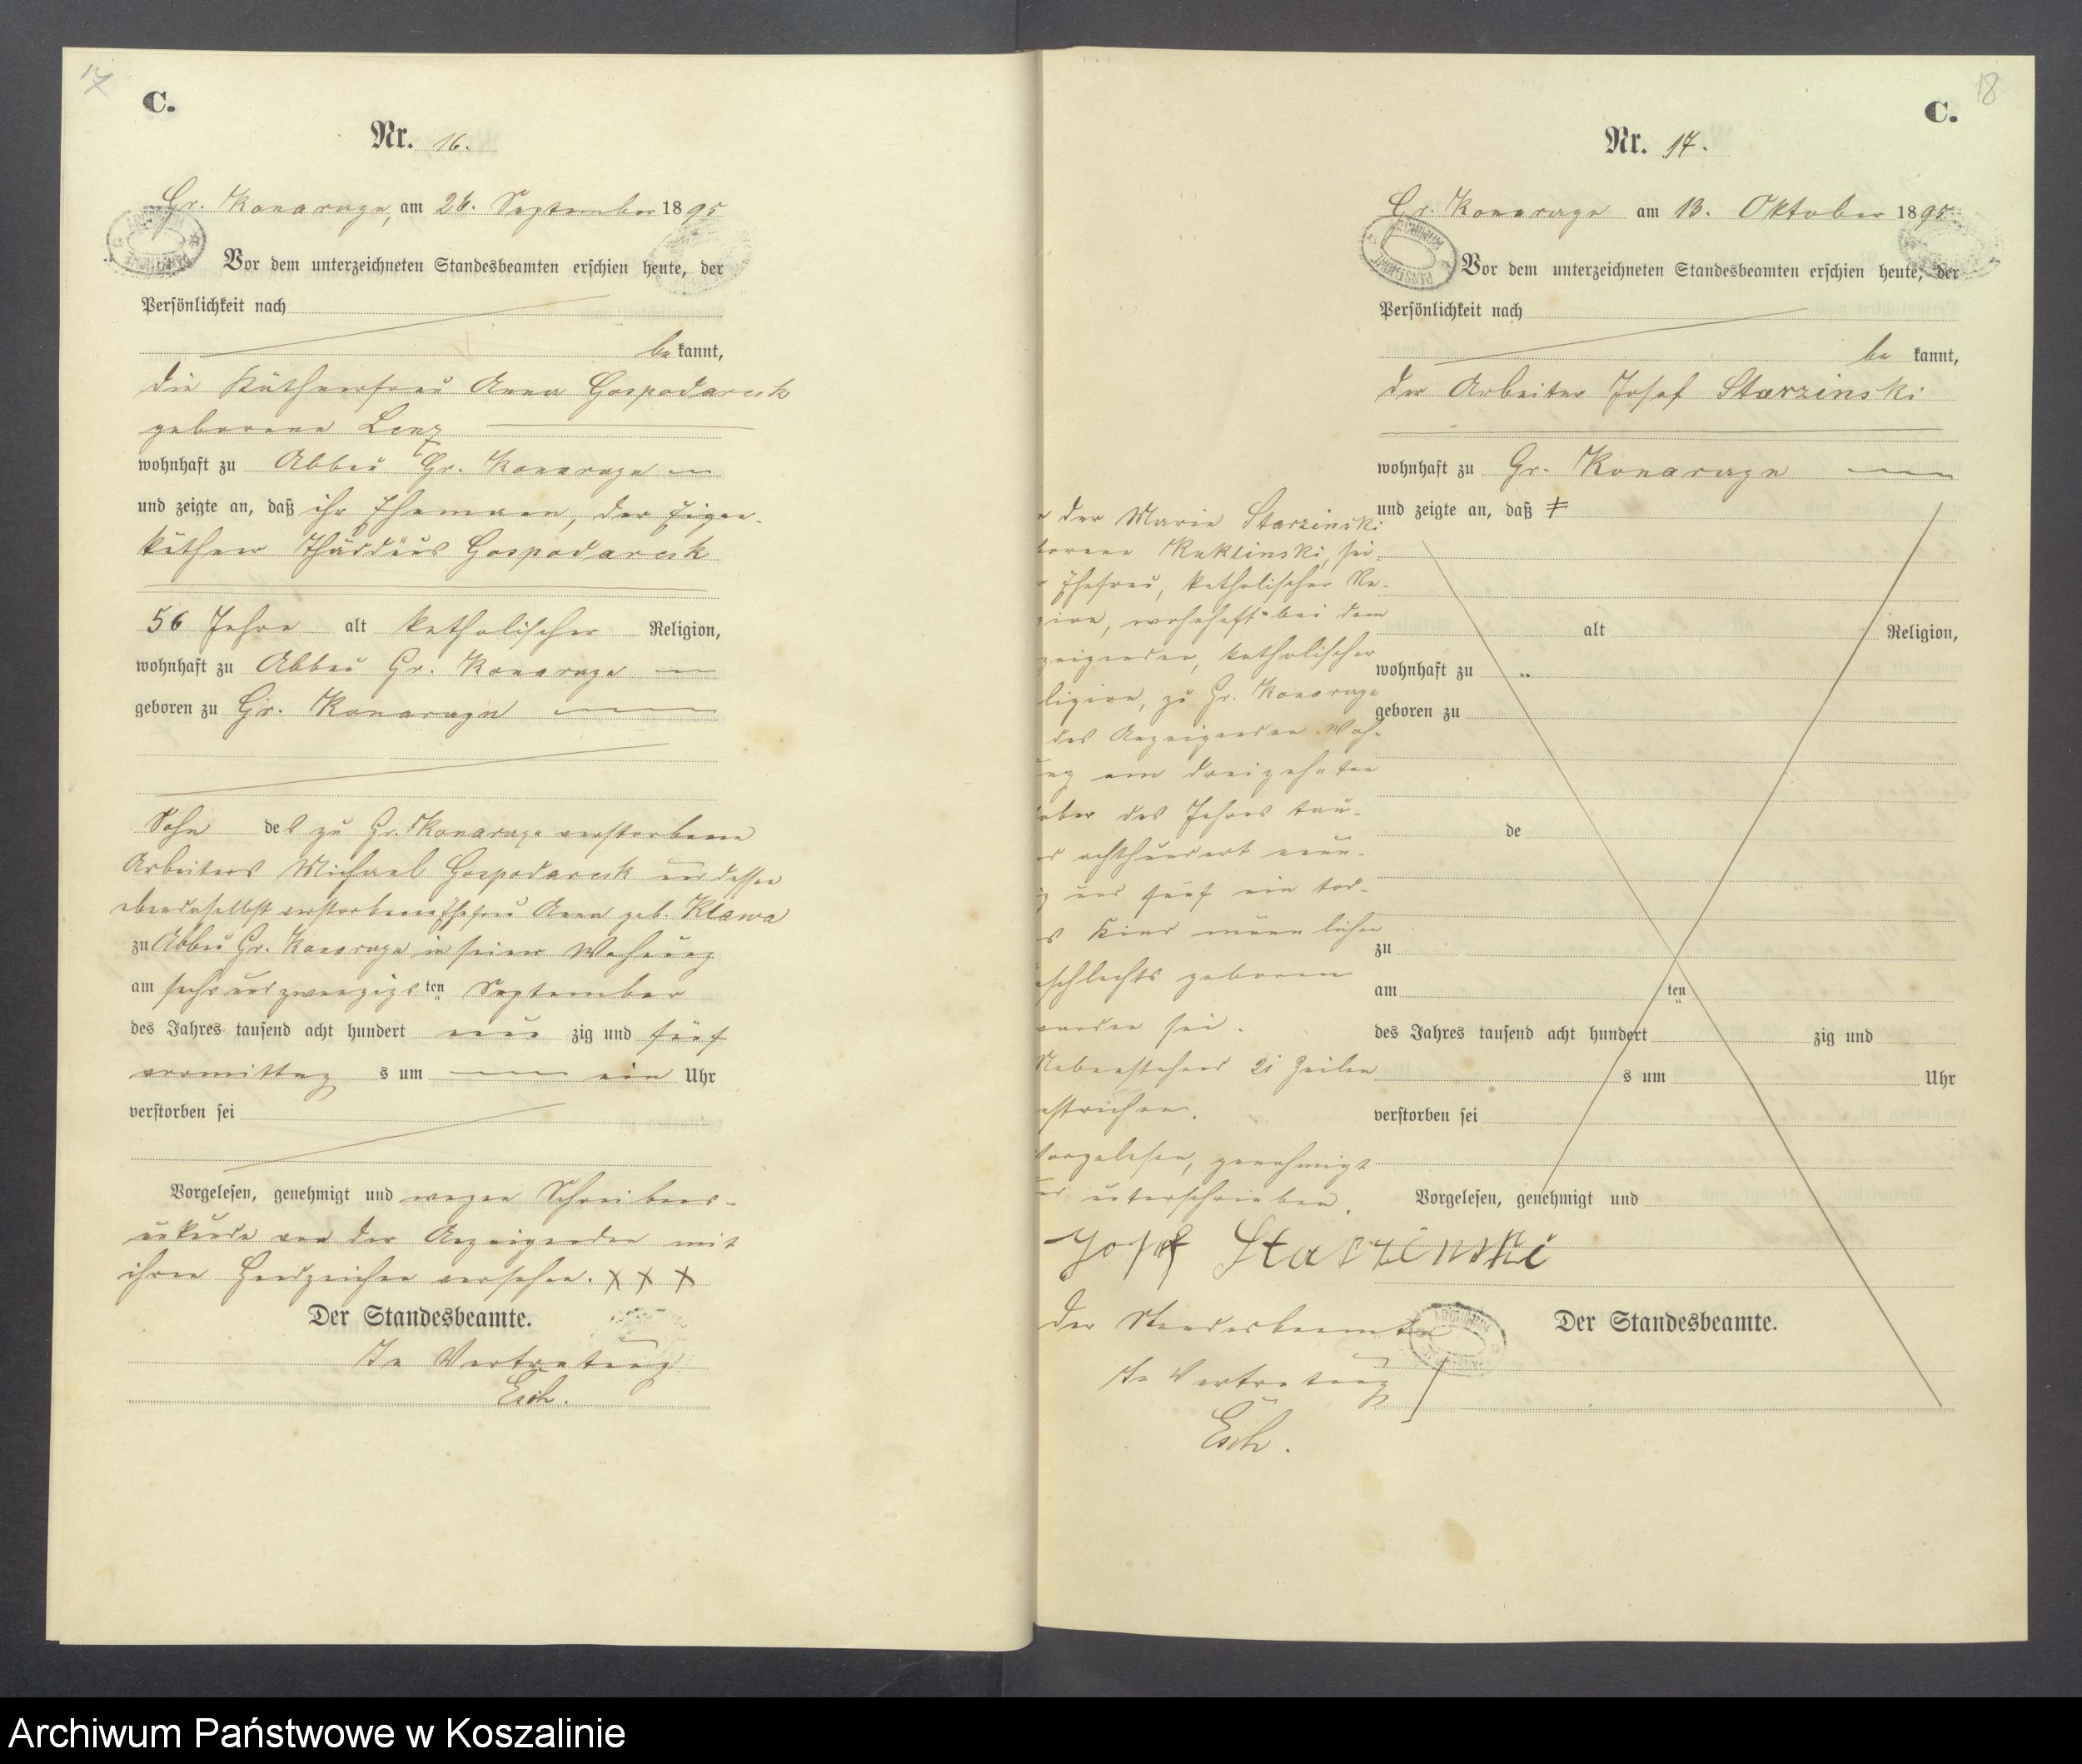 17
C.
Nr. 16.
Gr. Konarczyn, am 26. September 1895
Vor dem unterzeichneten Standesbeamten erschien heute, der
Persönlichkeit nach
be kannt,
die Käthnerfrau Anna Gospodarek
geborene Lenz
wohnhaft zu Abbau Gr. Konarczyn
und zeigte an, daß ihr Ehemann, der Eigen-
käthner Thaddäus Gospodarek
56 Jahre alt katholischer Religion,
wohnhaft zu Abbau Gr. Konarczyn
geboren zu Gr. Konarczyn
Sohn des zu Gr. Konarczyn verstorbenen
Arbeiters Michael Gospodarek und dessen
ebendaselbst verstorbenen Ehefrau Anna geb. Klawa
zu Abbau Gr. Konarczyn in seiner Wohnung
am sechs und zwanzigsten September
des Jahres tausend acht hundert neun zig und fünf
vormittag s um ein Uhr
verstorben sei
Vorgelesen, genehmigt und wegen Schreibens-
unkunde von der Anzeigenden mit
ihren Handzeichen versehen. XXX
Der Standesbeamte.
In Vertretung
Esch.
18
C.
Nr. 17.
Gr. Konarczyn am 13. Oktober 1895
Vor dem unterzeichneten Standesbeamten erschien heute, der
Persönlichkeit nach
be kannt,
der Arbeiter Josef Starzinski
wohnhaft zu Gr. Konarczyn
und zeigte an, daß
der Marie Starzinski
borene Kuklinski, sei
Ehefrau, katholischer Re-
gion, wohnhaft bei dem
zeigenden, katholischer
ligion, zu Gr. Konarczyn
des Anzeigenden Woh-
ng am dreizehnten
ober des Jahres tau-
d achthundert neun-
g und fünf ein tod-
s Kind männlichen
schlechts geboren
orden sei.
Nebenstehend 21 Zeilen
estrichen.
Vorgelesen, genehmigt
nd unterschrieben.
Josef Starzinski
Der Standesbeamte
In Vertretung
Esch.
alt Religion,
wohnhaft zu
geboren zu
de
zu
am ten
des Jahres tausend acht hundert zig und
s um Uhr
verstorben sei
Vorgelesen, genehmigt und
Der Standesbeamte.
Archiwum Państwowe w Koszalinie